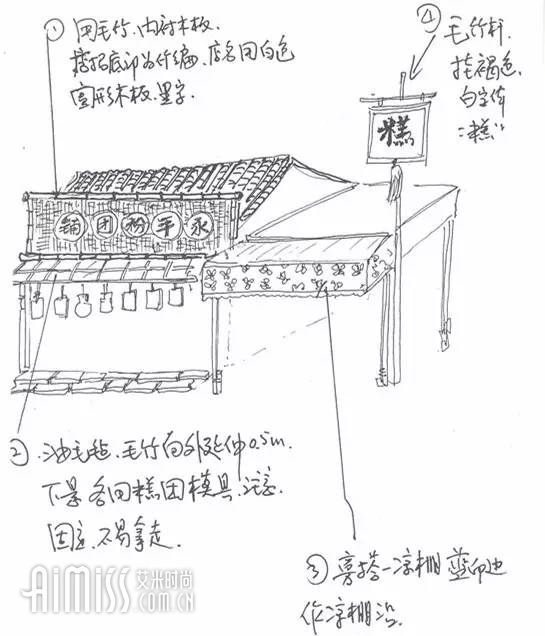 ① 用毛竹,内衬木板.
店招底部为竹编,店名用白色
圆形木板.墨字.
④ 毛竹杆.
挂褐色.
白字
"糕"
糕
永平粉团铺
② 油毛毡、毛竹向外延伸0.5m.
下悬各 糕团模具.注意.
固定,不易拿走.
③ 旁搭一凉棚 蓝印
作凉棚沿.
AiMISS 艾米时尚
.COM.CN